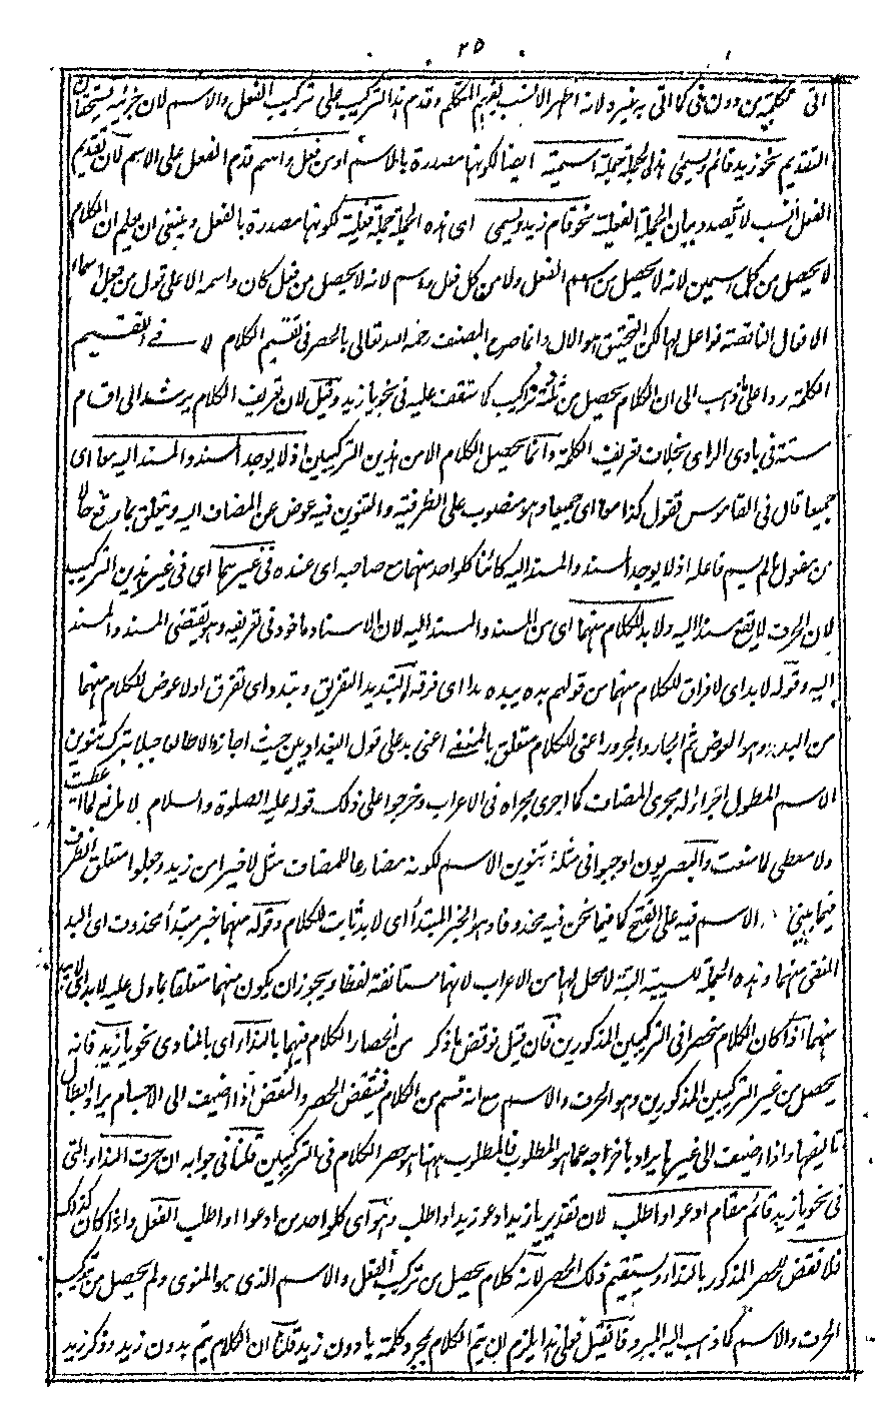 ٢٥
اتى بكلمة من دون فى كما اتى به غيره ولانه اظهر الانسب لغرض المتكلم وقدم هذا التركيب على تركيب الفعل والاسم لان جزئيه يستحقان
التقديم نحو زيد قائم ويسمى هذه الجملة جملة اسمية ايضا لكونها مصدرة بالاسم او من فعل واسم قدم الفعل على الاسم لان تقديم
الفعل انسب لانه بصدد بيان الجملة الفعلية نحو قام زيد ويسمى اى هذه الجملة جملة فعلية لكونها مصدرة بالفعل وينبغى ان يعلم ان الكلام
لا يحصل من كل اسمين لانه لا يحصل من اسم الفعل ولا من كل فعل واسم لانه لا يحصل من فعل كان واسمه الا على قول من جعل اسماء
الافعال الناقصة فواعل لها لكن التحقيق هو الاول وانما صرح المصنف رحمه الله تعالى بالحصر فى تقسيم الكلام لا فى تقسيم
الكلمة ردا على من ذهب الى ان الكلام يحصل من ثلثة تراكيب كما ستقف عليه فى نحو يا زيد وقيل لان تعريف الكلام يرشد الى اقسام
ستة فى بادى الراى بخلاف تعريف الكلمة وانما يحصل الكلام الا من هذين التركيبين اذ لا يوجد المسند والمسند اليه معا اى
جميعا قال فى القاموس تقول كنا معا اى جميعا وهو منصوب على الظرفية والتنوين فيه عوض عن المضاف اليه ويتعلق بما وقع حالا
من مفعول ما لم يسم فاعله اذ لا يوجد المسند والمسند اليه كائنا كل واحد منهما مع صاحبه اى عنده فى غيرهما اى فى غير هذين التركيبين
لان الحرف لا يقع مسندا اليه ولا بد للكلام منهما اى من المسند والمسند اليه لان الاسناد ماخوذ فى تعريفه وهو يقتضى المسند والمسند
اليه وقوله لا بد اى لا فراق للكلام منهما من قولهم بده يبده بدا اى فرقه والتبديد التفريق وتبدد اى تفرق او لا عوض للكلام منهما
من البد وهو العوض ثم الجار والمجرور اعنى للكلام متعلق بالمنفى اعنى بد على قول البغداديين حيث اجازوا لا طالعا جبلا بترك تنوين
الاسم المطول اجراء له مجرى المضاف كما اجرى مجراه فى الاعراب وخرجوا على ذلك قوله عليه الصلوة والسلام لا مانع لما اعطيت
ولا معطى لما منعت والبصريون اوجبوا فى مثله تنوين الاسم لكونه مضارعا للمضاف مثل لا خيرا من زيد وجعلوا متعلق الظرف
فيما بنى الاسم فيه على الفتح كما فيما نحن فيه محذوفا وهو الخبر للمبتدأ اى لا بد ثابت للكلام وقوله منهما خبر مبتدأ محذوف اى البد
المنفى منهما وهذه الجملة للتبيين البتة لا محل لها من الاعراب لانها مستانفة لفظا ويجوز ان يكون منهما متعلقا بما دل عليه لا بد اى لا بد
منهما اذا كان الكلام منحصرا فى التركيبين المذكورين فان قيل نوقض ما ذكر من انحصار الكلام فيهما بالنداء اى بالمنادى نحو يا زيد فانه
يحصل من غير التركيبين المذكورين وهو الحرف والاسم مع انه قسم من الكلام فينتقض الحصر والنقض اذا اضيف الى الاجسام يراد ابطال
تاليفها واذا اضيف الى غيرها يراد باخراجه عما هو المطلوب فالمطلوب ههنا هو حصر الكلام فى التركيبين قلنا فى جوابه ان حرف النداء التى
فى نحو يا زيد قائم مقام ادعو او اطلب لان تقدير يا زيد ادعو زيدا او اطلب وهو اى كل واحد من ادعو او اطلب الفعل واذا كان كذلك
فلا نقض للحصر المذكور بالنداء ويستقيم ذلك الحصر لانه كلام يحصل من تركيب الفعل والاسم الذى هو المنوى ولم يحصل من تركيب
الحرف والاسم كما ذهب اليه المبرد فان قيل فعلى هذا يلزم ان يتم الكلام بمجرد كلمة يا دون زيد قلنا ان الكلام يتم بدون زيد وذكر زيد